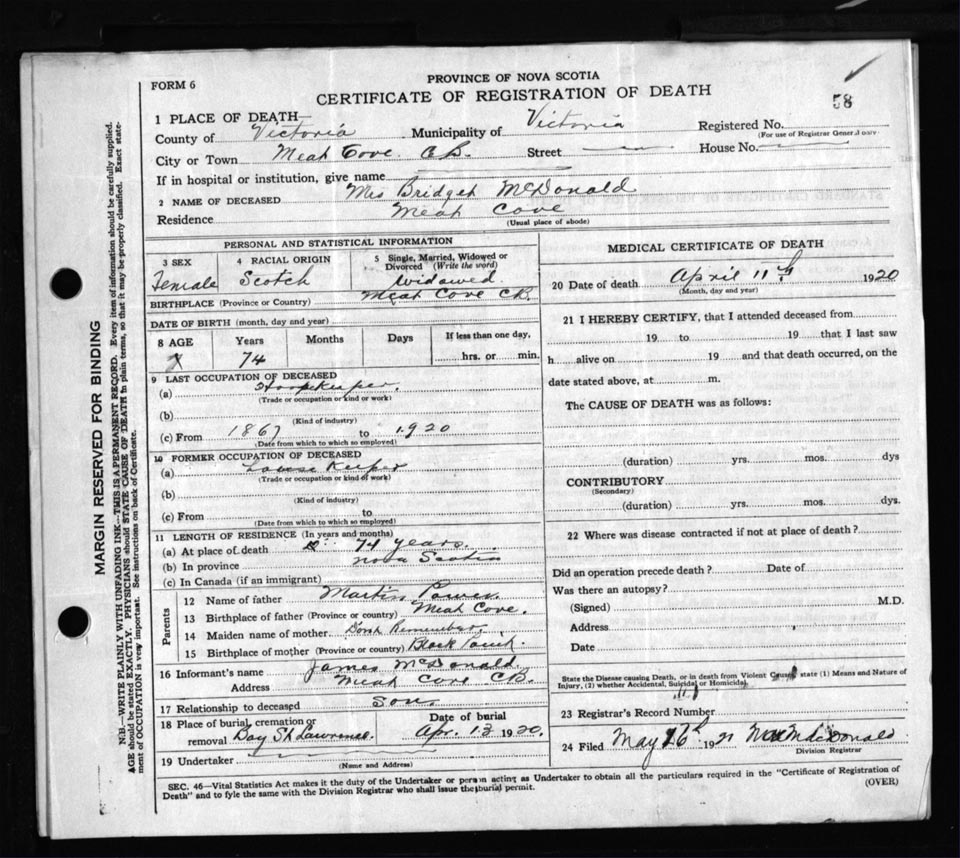 FORM 6
PROVINCE OF NOVA SCOTIA
CERTIFICATE OF REGISTRATION OF DEATH
58
1 PLACE OF DEATH—
County of Victoria Municipality of Victoria Registered No.
(For use of Registrar General only)
City or Town Meat Cove. C.B. Street House No.
If in hospital or institution, give name
2 NAME OF DECEASED Mrs Bridget McDonald
Residence Meat Cove
(Usual place of abode)
PERSONAL AND STATISTICAL INFORMATION
3 SEX 4 RACIAL ORIGIN 5 Single, Married, Widowed or Divorced (Write the word)
Female Scotch widowed
BIRTHPLACE (Province or Country) Meat Cove CB.
DATE OF BIRTH (month, day and year)
8 AGE Years Months Days If less than one day,
74 hrs. or min.
9 LAST OCCUPATION OF DECEASED
(a)
(Trade or occupation or kind or work)
(b)
(Kind of industry)
(c) From 1867 to 1920
(Date from which to which so employed)
10 FORMER OCCUPATION OF DECEASED
(a) House Keeper
(Trade or occupation or kind of work)
(b)
(Kind of industry)
(c) From to
(Date from which to which so employed)
11 LENGTH OF RESIDENCE (In years and months)
(a) At place of death 74 years.
(b) In province Nova Scotia
(c) In Canada (if an immigrant)
Parents
12 Name of father Martin Power
13 Birthplace of father (Province or country) Meat Cove.
14 Maiden name of mother
15 Birthplace of mother (Province or country) Black Point.
16 Informant's name James McDonald
Address Meat Cove CB.
17 Relationship to deceased Son.
18 Place of burial, cremation or removal Bay St Lawrence. Date of burial Apr. 13 1920.
19 Undertaker
(Name and Address)
MEDICAL CERTIFICATE OF DEATH
20 Date of death April 11th 1920
(Month, day and year)
21 I HEREBY CERTIFY, that I attended deceased from
19 to 19 that I last saw
h alive on 19 and that death occurred, on the
date stated above, at m.
The CAUSE OF DEATH was as follows:
(duration) yrs. mos. dys
CONTRIBUTORY
(Secondary)
(duration) yrs. mos. dys.
22 Where was disease contracted if not at place of death?
Did an operation precede death? Date of
Was there an autopsy?
(Signed) M.D.
Address
Date
State the Disease causing Death, or in death from Violent Causes, state (1) Means and Nature of
Injury, (2) whether Accidental, Suicidal or Homicidal.
23 Registrar's Record Number
24 Filed May 26th 1921 McDonald
Division Registrar
SEC. 46—Vital Statistics Act makes it the duty of the Undertaker or person acting as Undertaker to obtain all the particulars required in the "Certificate of Registration of
Death" and to fyle the same with the Division Registrar who shall issue the burial permit.
(OVER)
MARGIN RESERVED FOR BINDING
N.B.—WRITE PLAINLY WITH UNFADING INK—THIS IS A PERMANENT RECORD. Every item of information should be carefully supplied.
AGE should be stated EXACTLY. PHYSICIANS should STATE CAUSE OF DEATH in plain terms, so that it may be properly classified. Exact state-
ment of OCCUPATION is very important. See instructions on back of Certificate.